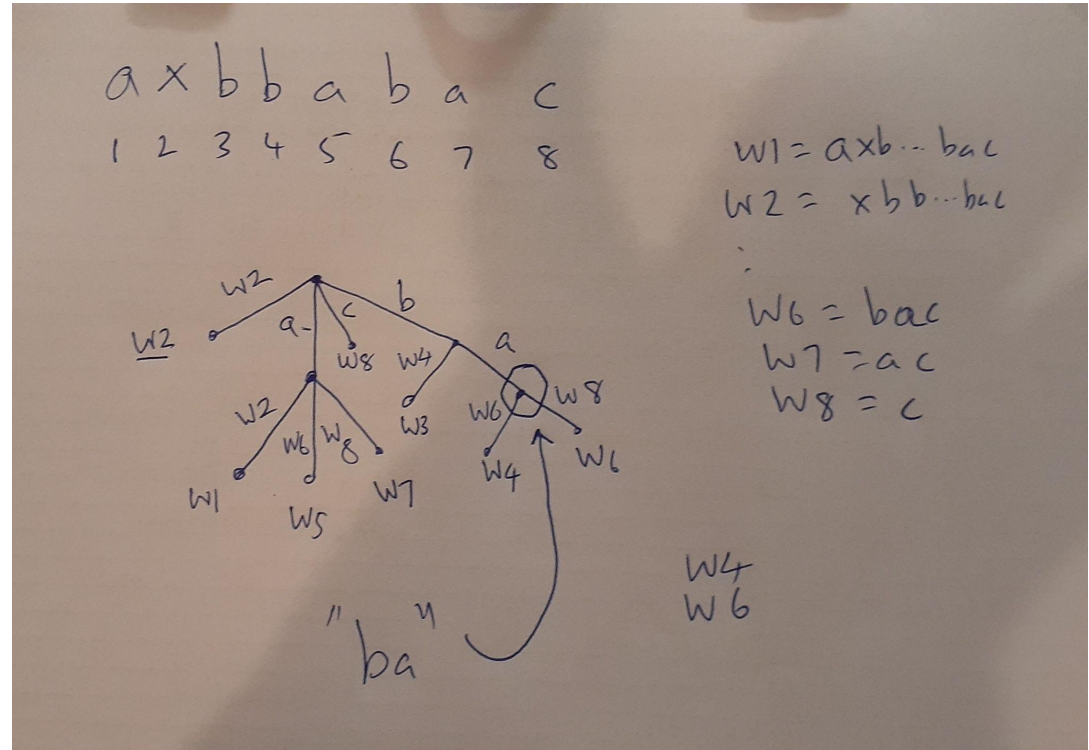 a x b b a b a c
1 2 3 4 5 6 7 8
W1 = axb...bac
W2 = xbb...bac
:
W6 = bac
W7 = ac
W8 = c
W2
a
c
b
W2
W8
W4
a
W2
W6
W8
W3
W6
W8
W1
W5
W7
W4
W6
"ba"
W4
W6